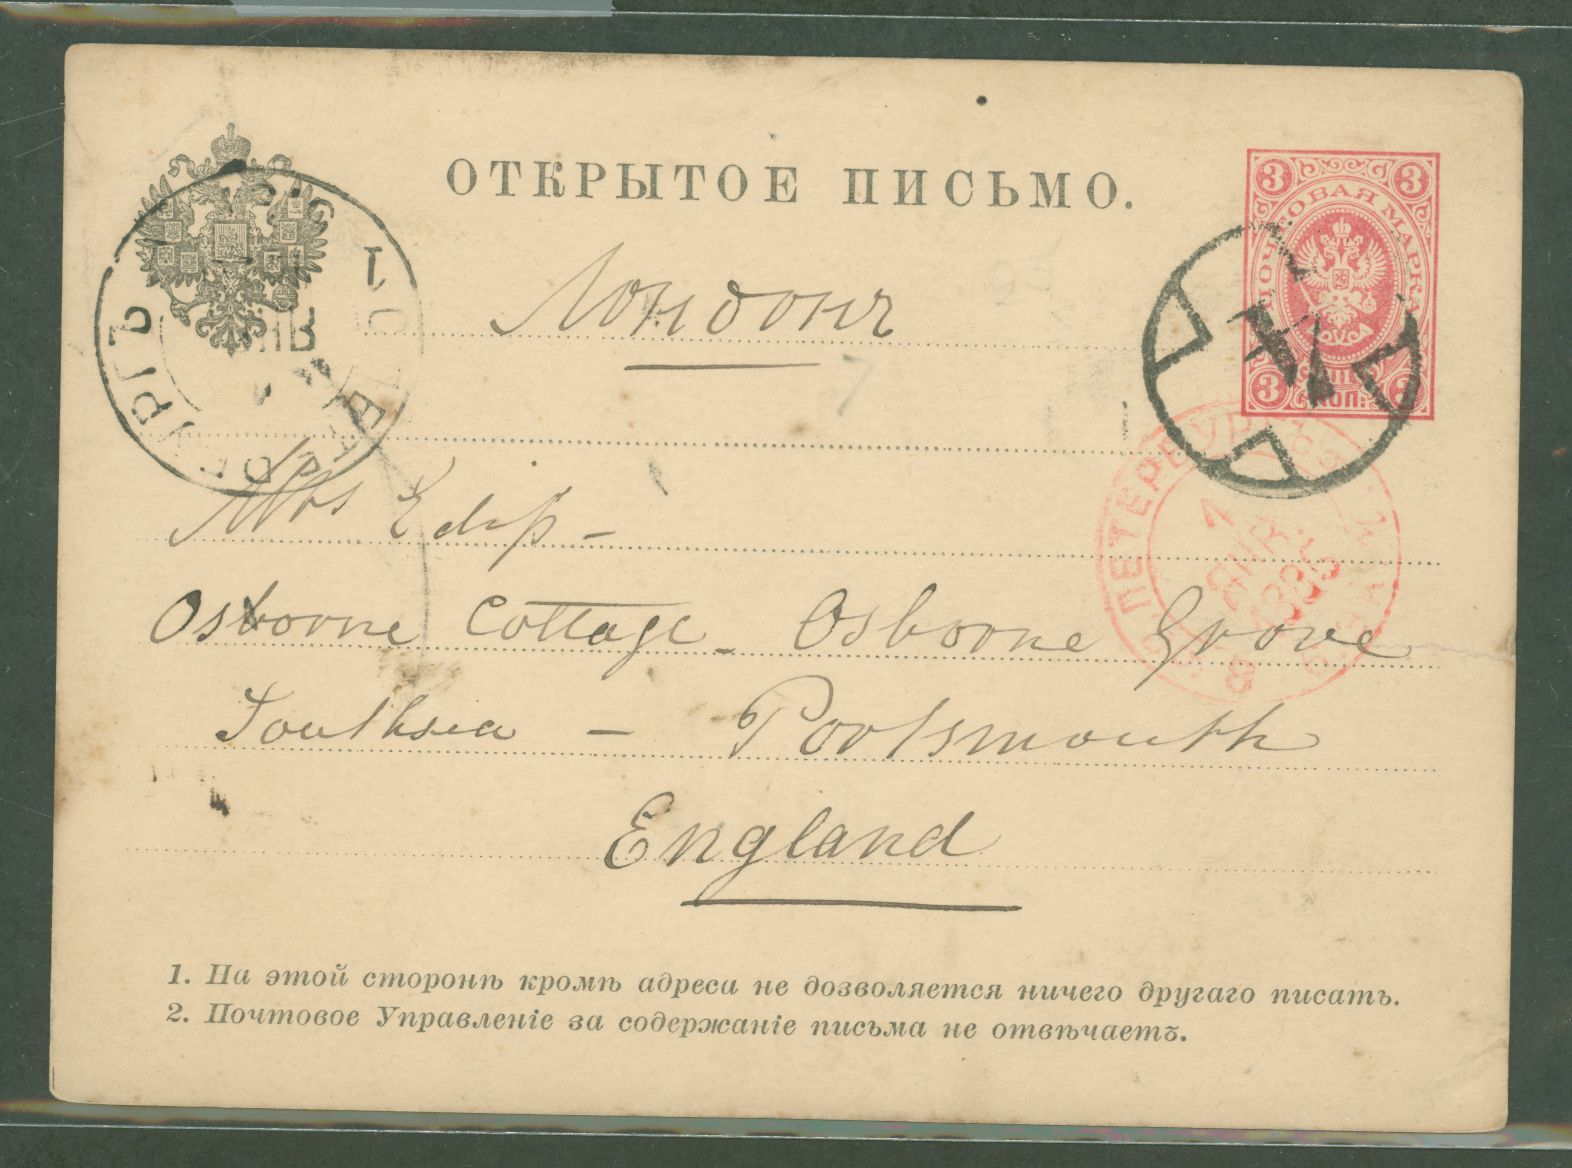 ОТКРЫТОЕ ПИСЬМО.
3 3
ПОЧТОВАЯ МАРКА
3 КОП: 3
Лондонъ
С. ПЕТЕРБУРГЪ
ПЕТЕРБУРГ
7
ЯНВ.
Mrs
Osborne Cottage - Osborne Grove
Southsea - Portsmouth
England
1. На этой сторонѣ кромѣ адреса не дозволяется ничего другаго писать.
2. Почтовое Управленіе за содержаніе письма не отвѣчаетъ.